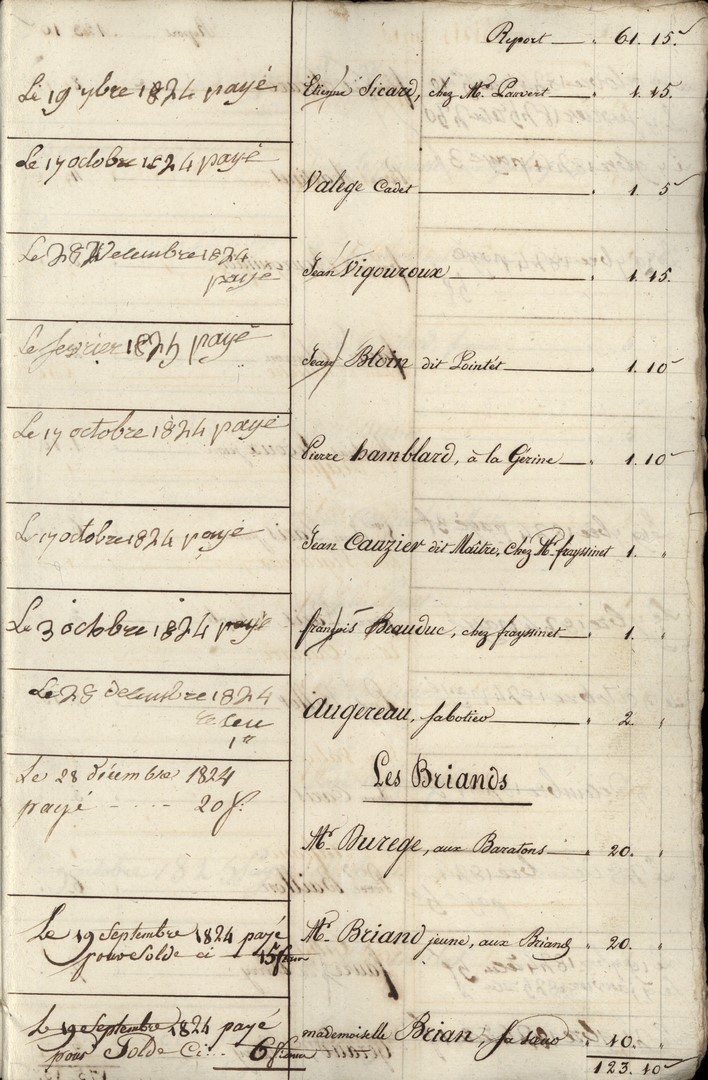 Report — " 61. 15
Le 19 7bre 1824 payé
Etienne Sicard, chez Mr. Pauvert — 1. 15
Le 17 octobre 1824 payé
Valège Cadet — " 1. 5
Le 28 Decembre 1824
payé
Jean Vigouroux — " 1. 15
Le fevrier 1825 payé
Jean Bloin dit Pointét — " 1. 10
Le 17 octobre 1824 payé
Pierre hamblard, à la Gérine — " 1. 10
Le 17 octobre 1824 payé
Jean Cauzier dit Maître, chez Mr. frayssinet 1. "
Le 3 octobre 1824 payé
françois Beauduc, chez frayssinet — " 1. "
Le 28 decembre 1824
1
Augereau, sabotier — " 2. "
Les Briands
Le 28 décembre 1824
payé - - - - 20 f.
Mr. Durege, aux Baratons — " 20. "
Le 19 Septembre 1824 payé
pour Solde ci 15 fran
Mr. Briand jeune, aux Briands " 20. "
Le 19 Septembre 1824 payé
pour Solde Ci.. 6 francs
mademoiselle Brian, sa sœur 10. "
123. 10